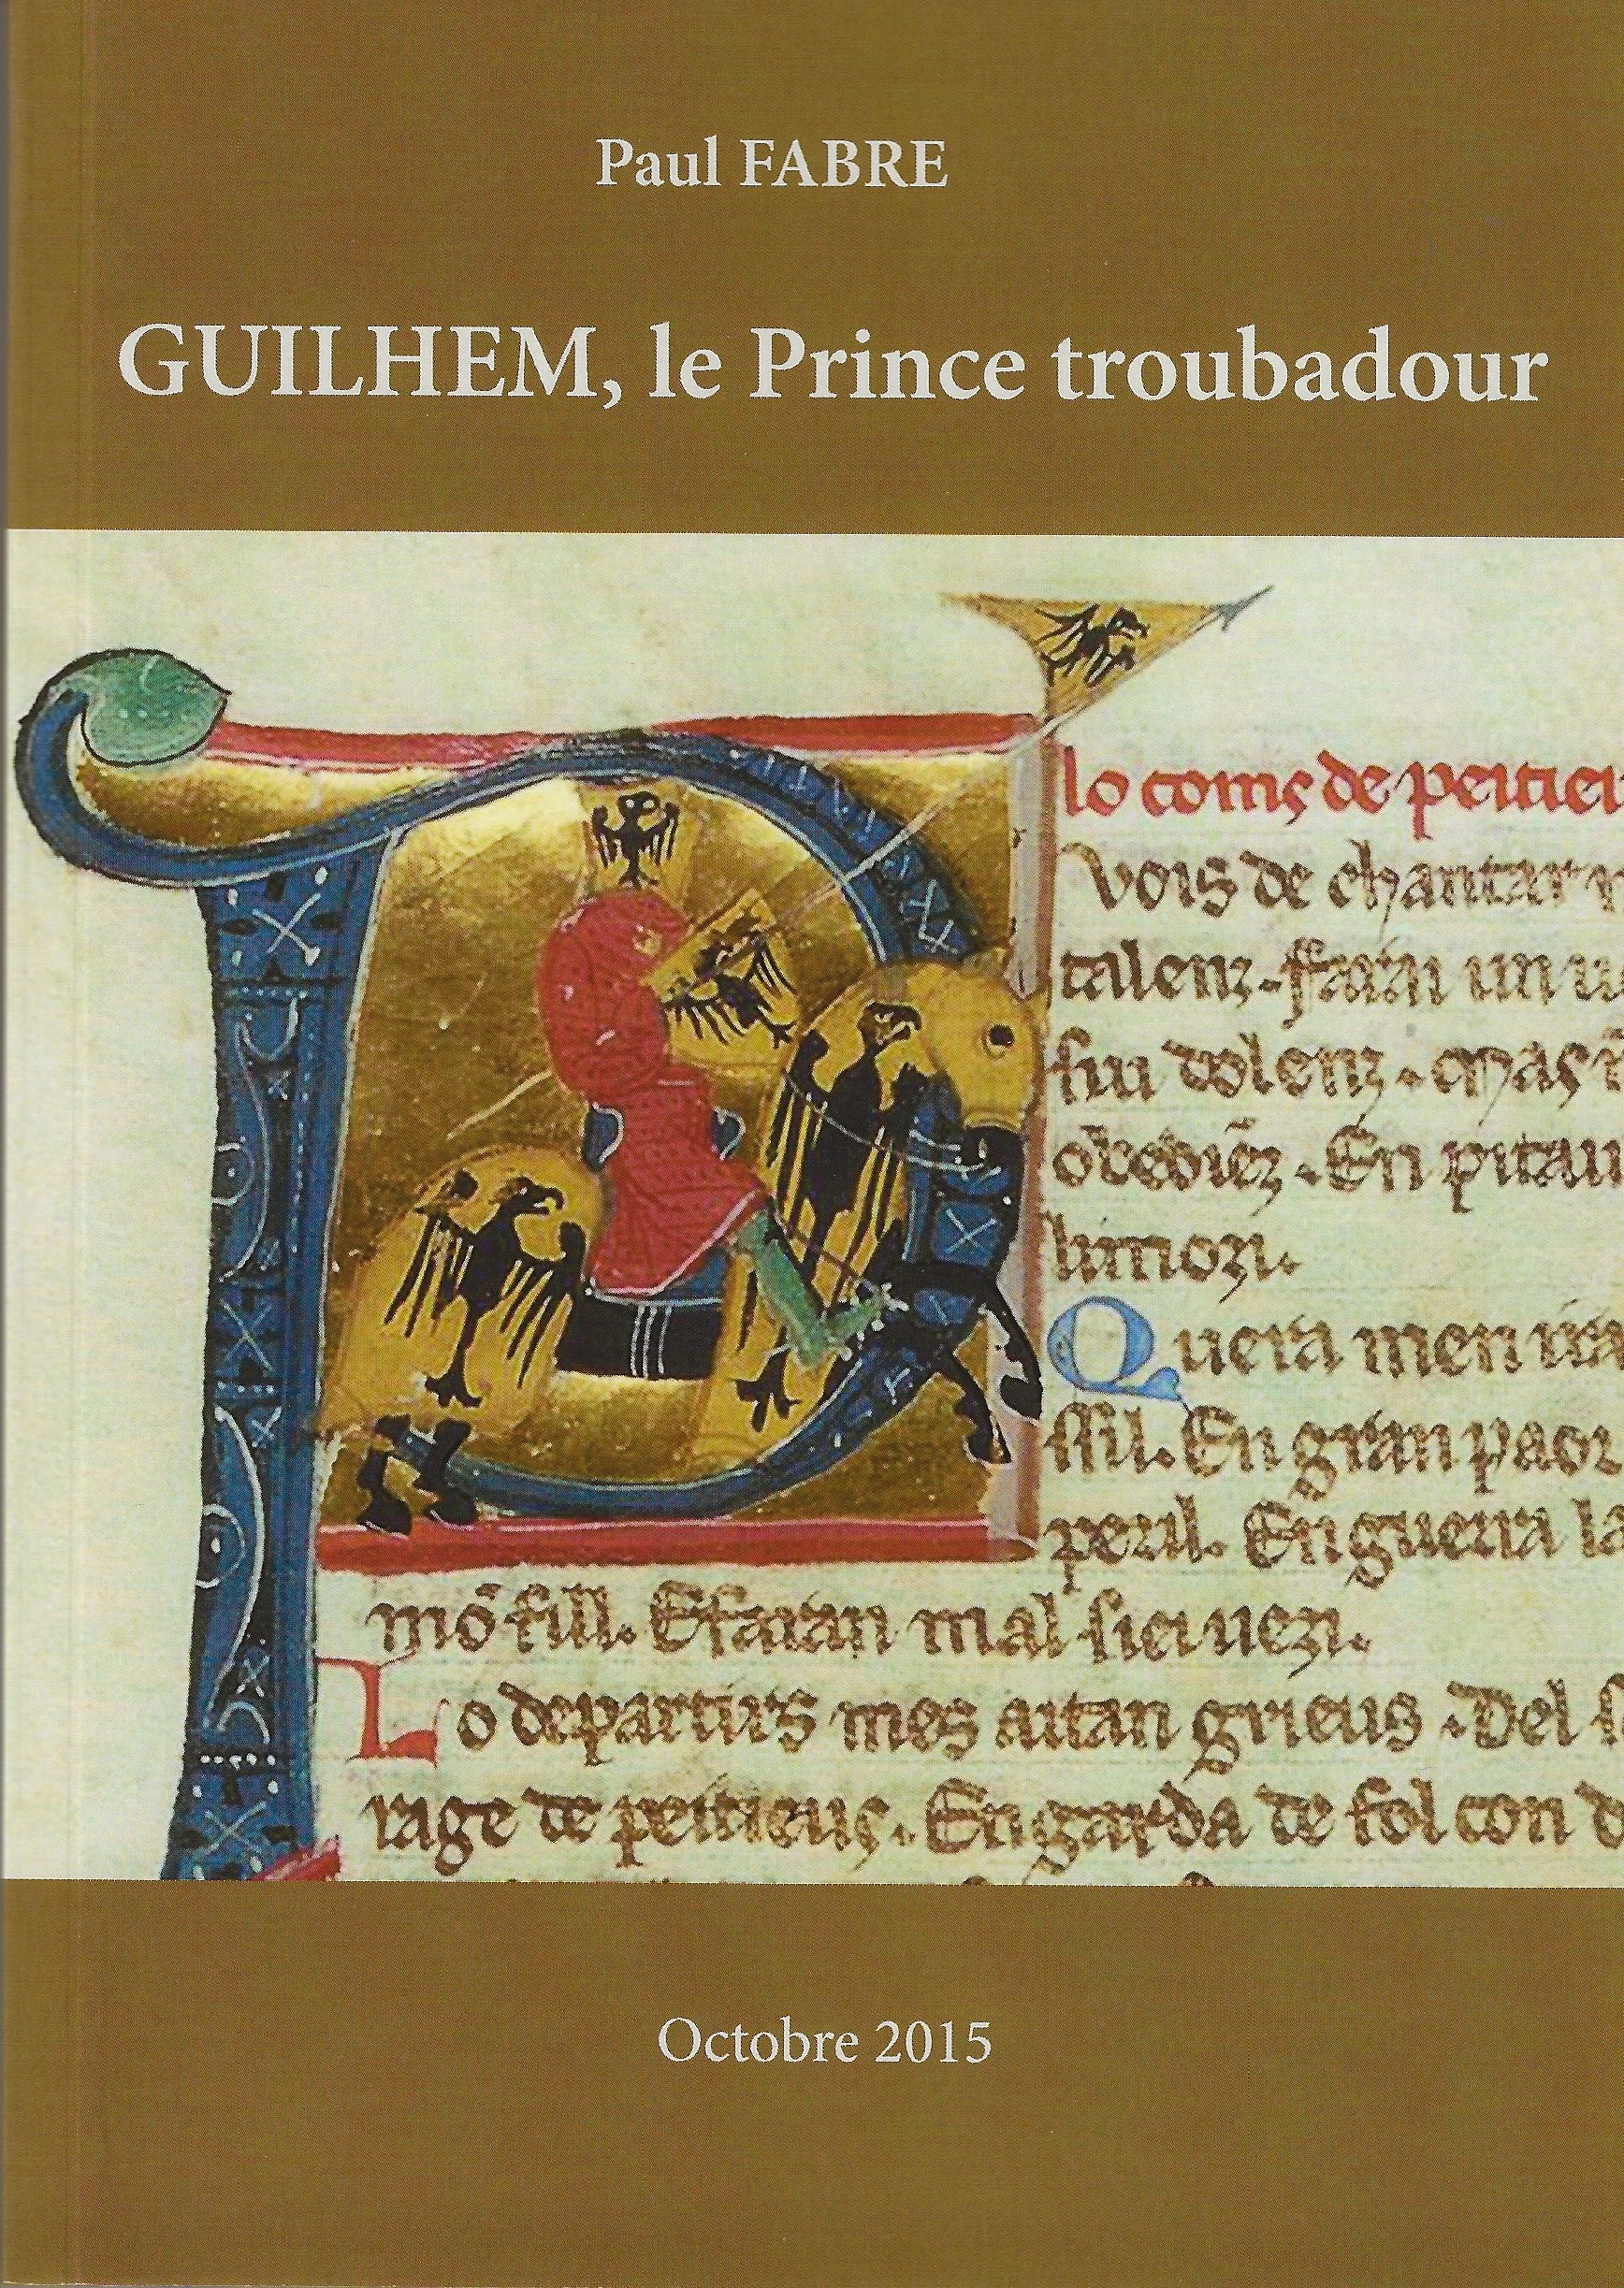 Paul FABRE
GUILHEM, le Prince troubadour
lo coms de peitieu
vois de chantar
talenz. farai un
fiu dolenz. mas
obediēz. En pitau
limozi.
Quera men irai
ssil. En gran paor
peril. En guerra la
mō fill. E faran mal siei uezi.
Lo departirs mes aitan grieus. Del
rage de peitieus. En garda de folcon
Octobre 2015